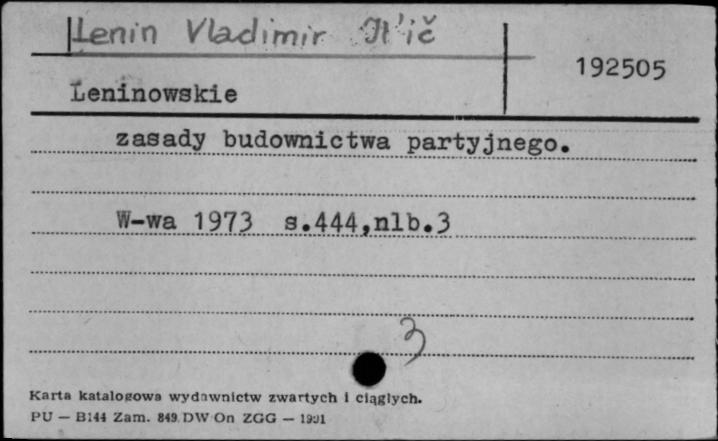 Lenin Vladimir Il'ič
192505
Leninowskie
zasady budownictwa partyjnego.
W-wa 1973 s.444,nlb.3
3
Karta katalogowa wydawnictw zwartych i ciągłych.
PU — B144 Zam. 849. DW On ZGG —